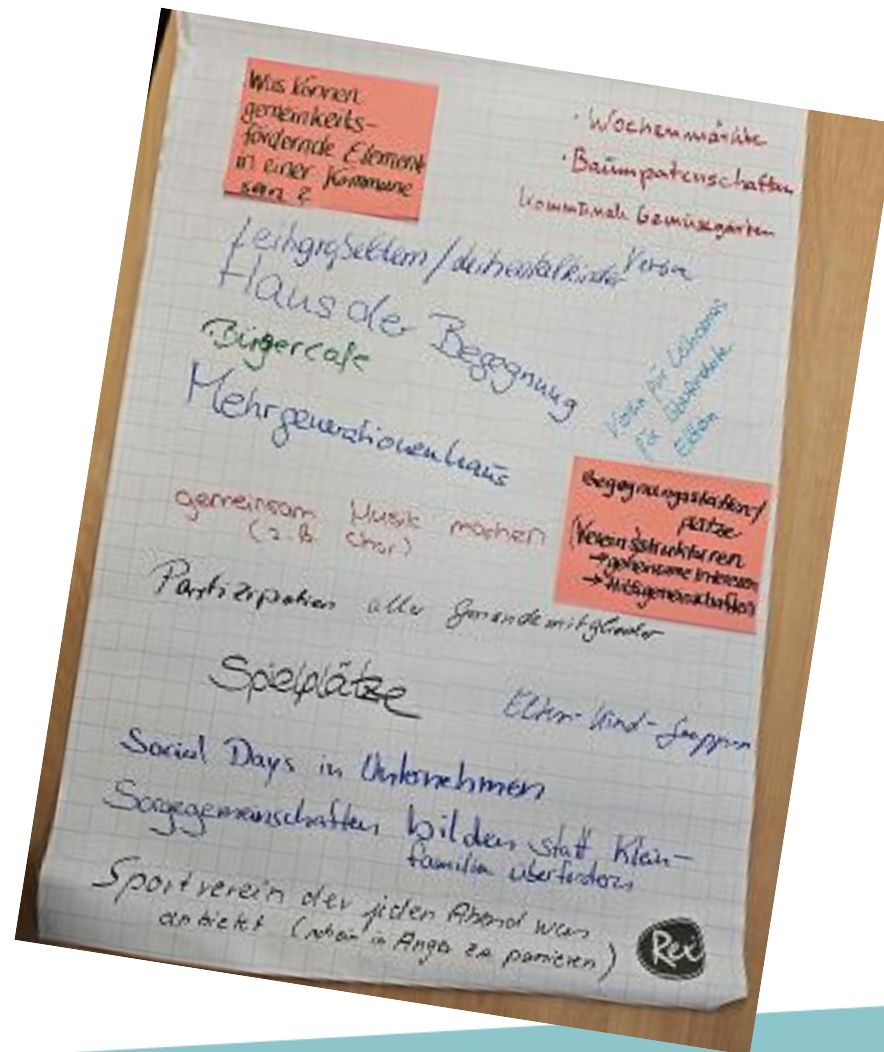 Was können
gemeinkeits-
fördernde Element
in einer Kommune
sein?
· Wochenmärkte
· Baumpatenschaften
kommunale Gemüsegärten
Leihgroßeltern /
Verein
Haus der Begegnung
· Bürgercafe
Mehrgenerationenhaus
Verein für
für
Eltern
Begegnungsstätten/
plätze
(Vereinsstrukturen
→ gemeinsame Interessen
→
gemeinsam Musik machen
(z.B. Chor)
Partizipation aller Gemeindemitglieder
Spielplätze
Eltern-Kind-Gruppen
Social Days in Unternehmen
Sorgegemeinschaften bilden statt Klein-
familien überfordern
Sportverein der jeden Abend was
anbietet ( in Anger zu)
Rex